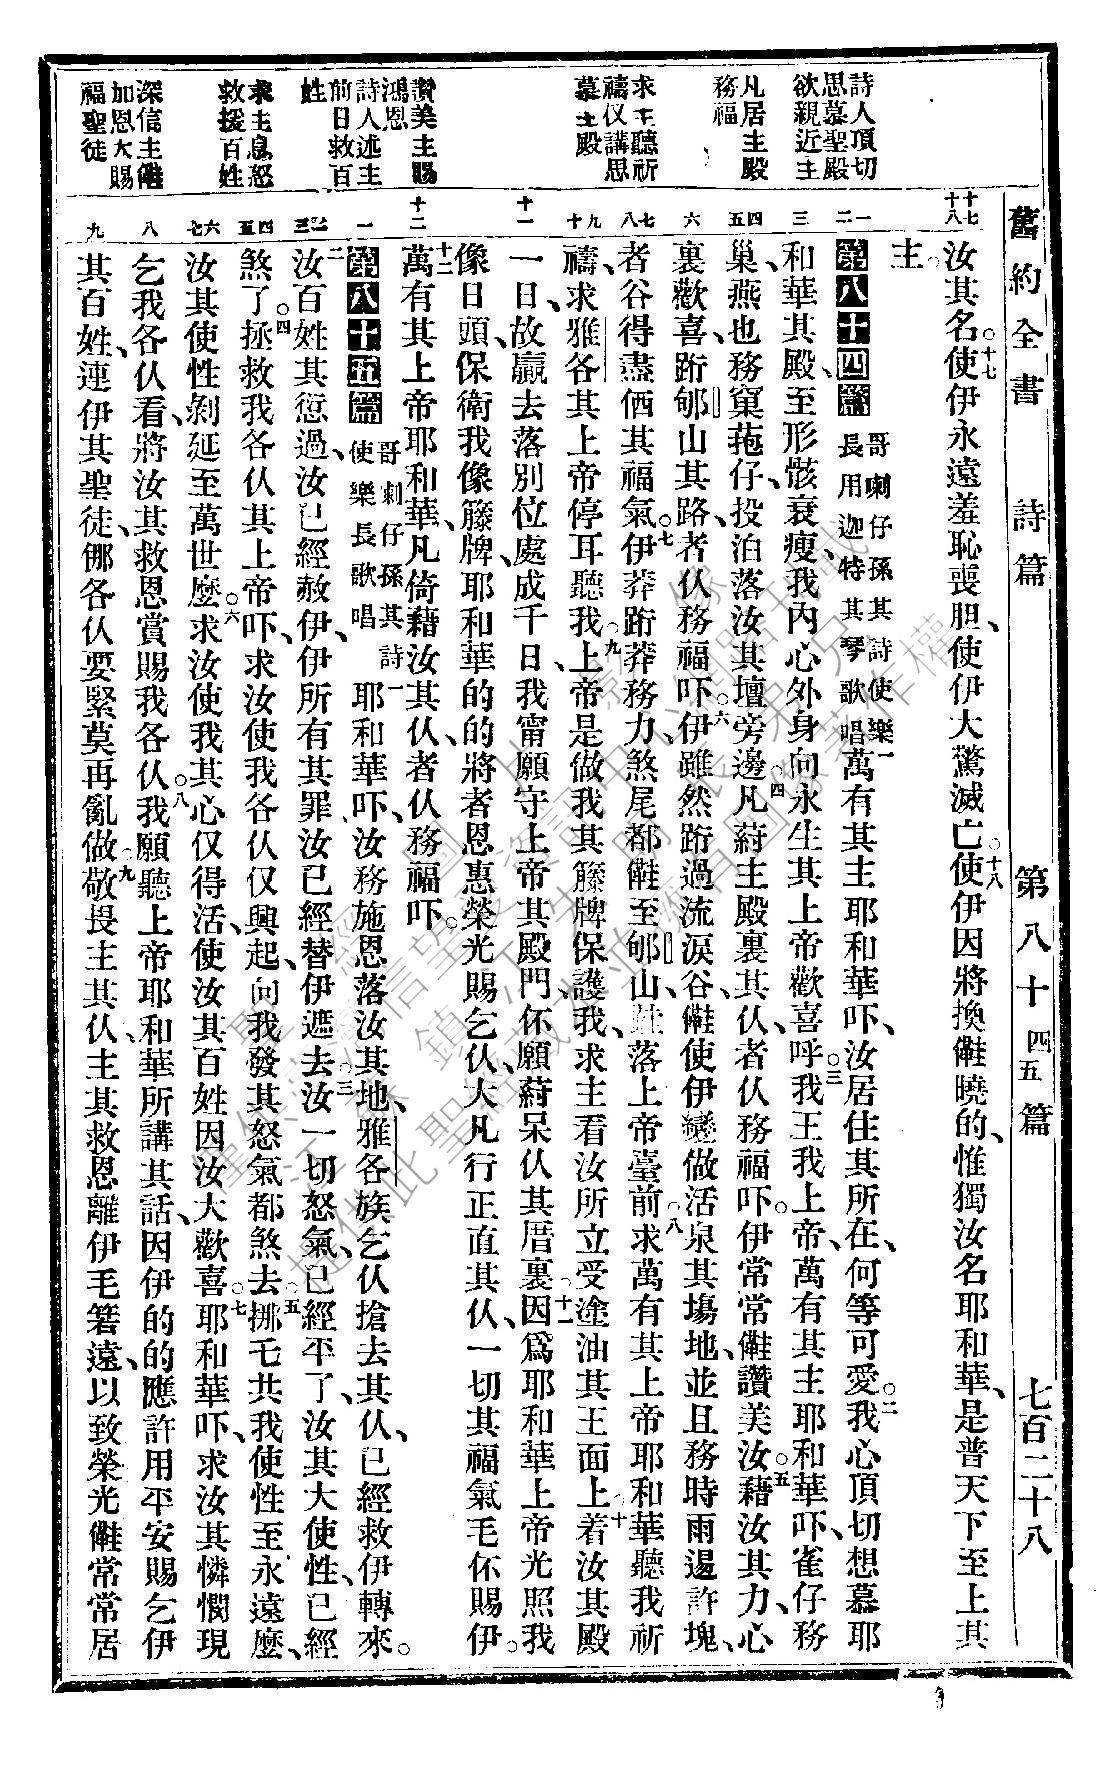 舊約全書 詩篇 第八十四五篇 七百二十八
詩人頂切
思慕聖殿
欲親近主
凡居主殿
務福
求主聽祈
禱仅講思
慕主殿
讚美主賜
鴻恩
詩人述主
前日救百
姓
求主息怒
救援百姓
深信主
加恩大賜
福聖徒
汝其名。十七使伊永遠羞恥喪胆、使伊大驚滅亡。十八使伊因將換𣍐曉的、惟獨汝名耶和華、是普天下至上其
主。
第八十四篇 哥喇仔孫其詩使樂長用迦特其琴歌唱 一萬有其主耶和華吓、汝居住其所在、何等可愛。二我心頂切想慕耶
和華其殿、至形骸衰瘦我內心外身向永生其上帝歡喜呼我王我上帝、萬有其主耶和華吓、雀仔務
巢、燕也務窠菢仔、投泊落汝其壇旁邊。四凡蒔主殿裏其仈、者仈務福吓。伊常常𣍐讚美汝。五藉汝其力、心
裏歡喜跻郇山其路、者仈務福吓。六伊雖然跻過流淚谷、𣍐使伊變做活泉其塲地、並且務時雨𨓜許塊、
者谷得盡伵其福氣。七伊莽跻莽務力、煞尾都𣍐至郇山、跓落上帝臺前。八求萬有其上帝耶和華聽我祈
禱、求雅各其上帝停耳聽我。九上帝是做我其籐牌保護我、求主看汝所立受塗油其王面上。十着汝其殿
一日、故贏去落別位處成千日、我甯願守上帝其殿門、伓願蒔呆仈其厝裏。十一因爲耶和華上帝光照我
像日頭、保衛我像籐牌、耶和華的的將者恩惠榮光賜乞仈、大凡行正直其仈、一切其福氣毛伓賜伊。
十二萬有其上帝耶和華、凡倚藉汝其仈、者仈務福吓。
第八十五篇 哥喇仔孫其詩使樂長歌唱 一耶和華吓、汝務施恩落汝其地、雅各族乞仈搶去其仈、已經救伊轉來。
二汝百姓其愆過、汝已經赦伊、伊所有其罪、汝已經替伊遮去。三汝一切怒氣、已經平了、汝其大使性、已經
煞了。四拯救我各仈其上帝吓、求汝使我各仈仅興起、向我發其怒氣都煞去。五挪毛共我使性至永遠麽、
汝其使性剝延至萬世麽。六求汝使我其心仅得活、使汝其百姓因汝大歡喜。七耶和華吓、求汝其憐憫現
乞我各仈看、將汝其救恩賞賜我各仈。八我願聽上帝耶和華所講其話、因伊的的應許用平安賜乞伊
其百姓、連伊其聖徒、挪各仈要緊莫再亂做。九敬畏主其仈、主其救恩離伊毛𥴊遠、以致榮光𣍐常常居